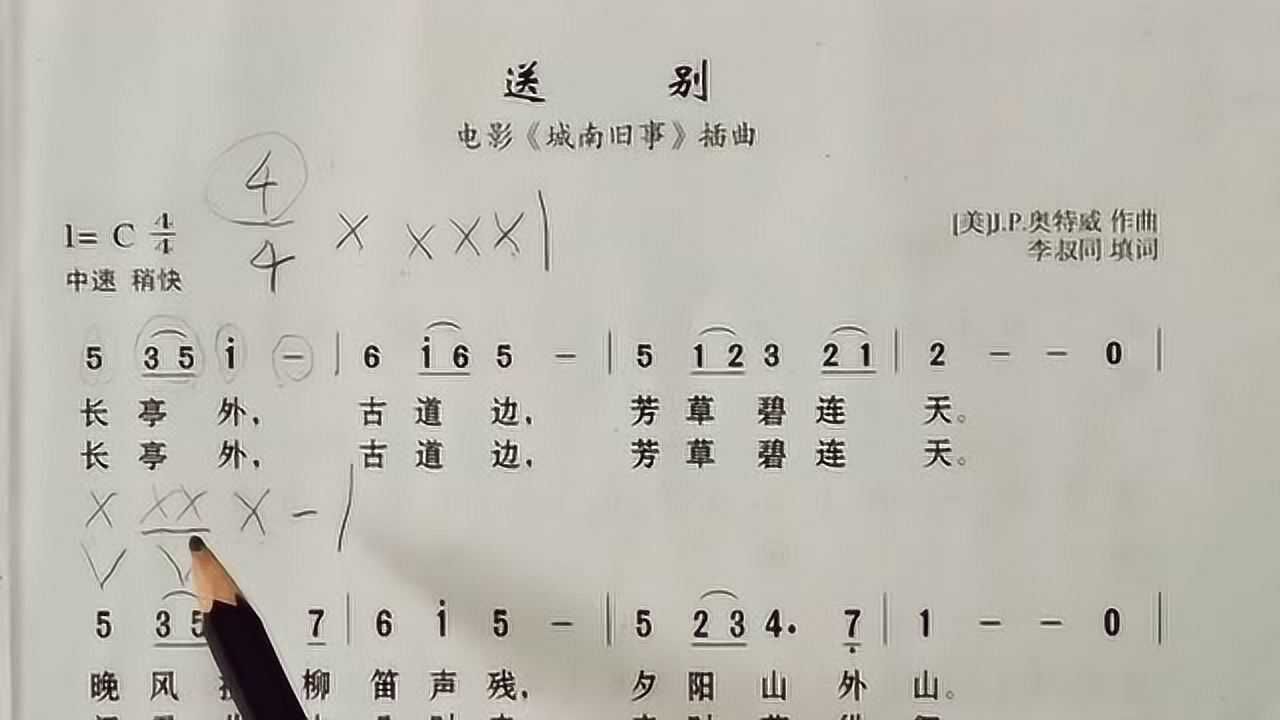 送 别
电影《城南旧事》插曲
4
4 × × × × |
1= C 4/4
中速 稍快
[美]J.P.奥特威 作曲
李叔同 填词
5 3 5 i – | 6 i 6 5 – | 5 1 2 3 2 1 | 2 – – 0 |
长 亭 外, 古 道 边, 芳 草 碧 连 天。
长 亭 外, 古 道 边, 芳 草 碧 连 天。
× ×× × – |
∨ ∨
5 3 5 7 | 6 i 5 – | 5 2 3 4. 7 | 1 – – 0 |
晚 风 柳 笛 声 残, 夕 阳 山 外 山。